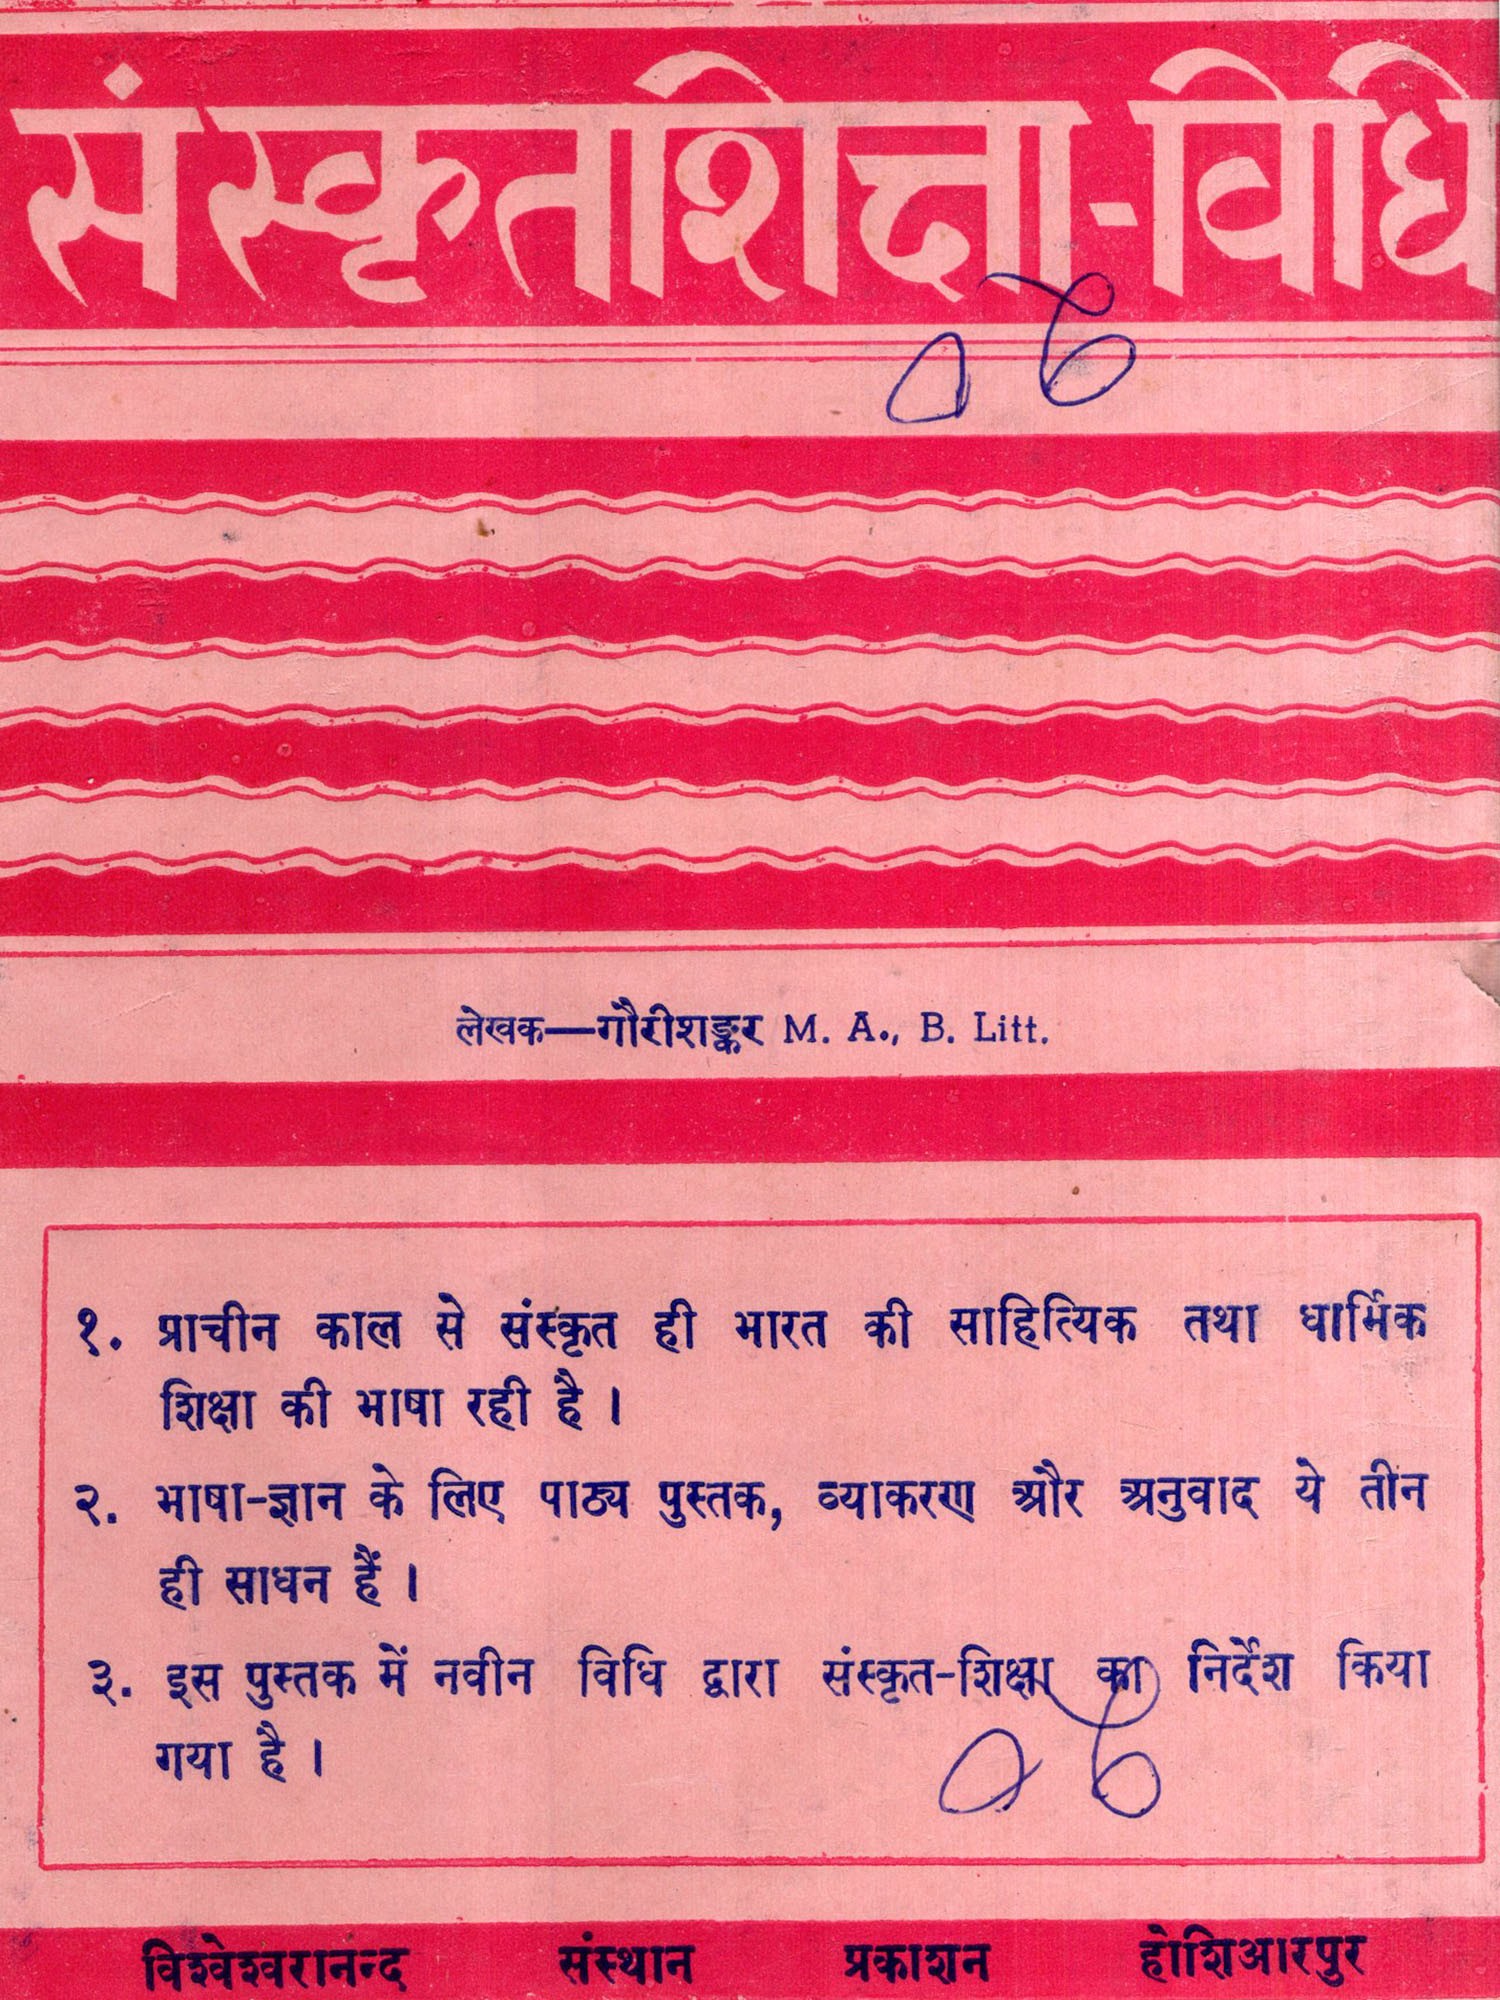 संस्कृतशिक्षा-विधि
लेखक—गौरीशङ्कर M. A., B. Litt.
१. प्राचीन काल से संस्कृत ही भारत की साहित्यिक तथा धार्मिक
शिक्षा की भाषा रही है ।
२. भाषा-ज्ञान के लिए पाठ्य पुस्तक, व्याकरण और अनुवाद ये तीन
ही साधन हैं ।
३. इस पुस्तक में नवीन विधि द्वारा संस्कृत-शिक्षा का निर्देश किया
गया है ।
विश्वेश्वरानन्द संस्थान प्रकाशन होशिआरपुर